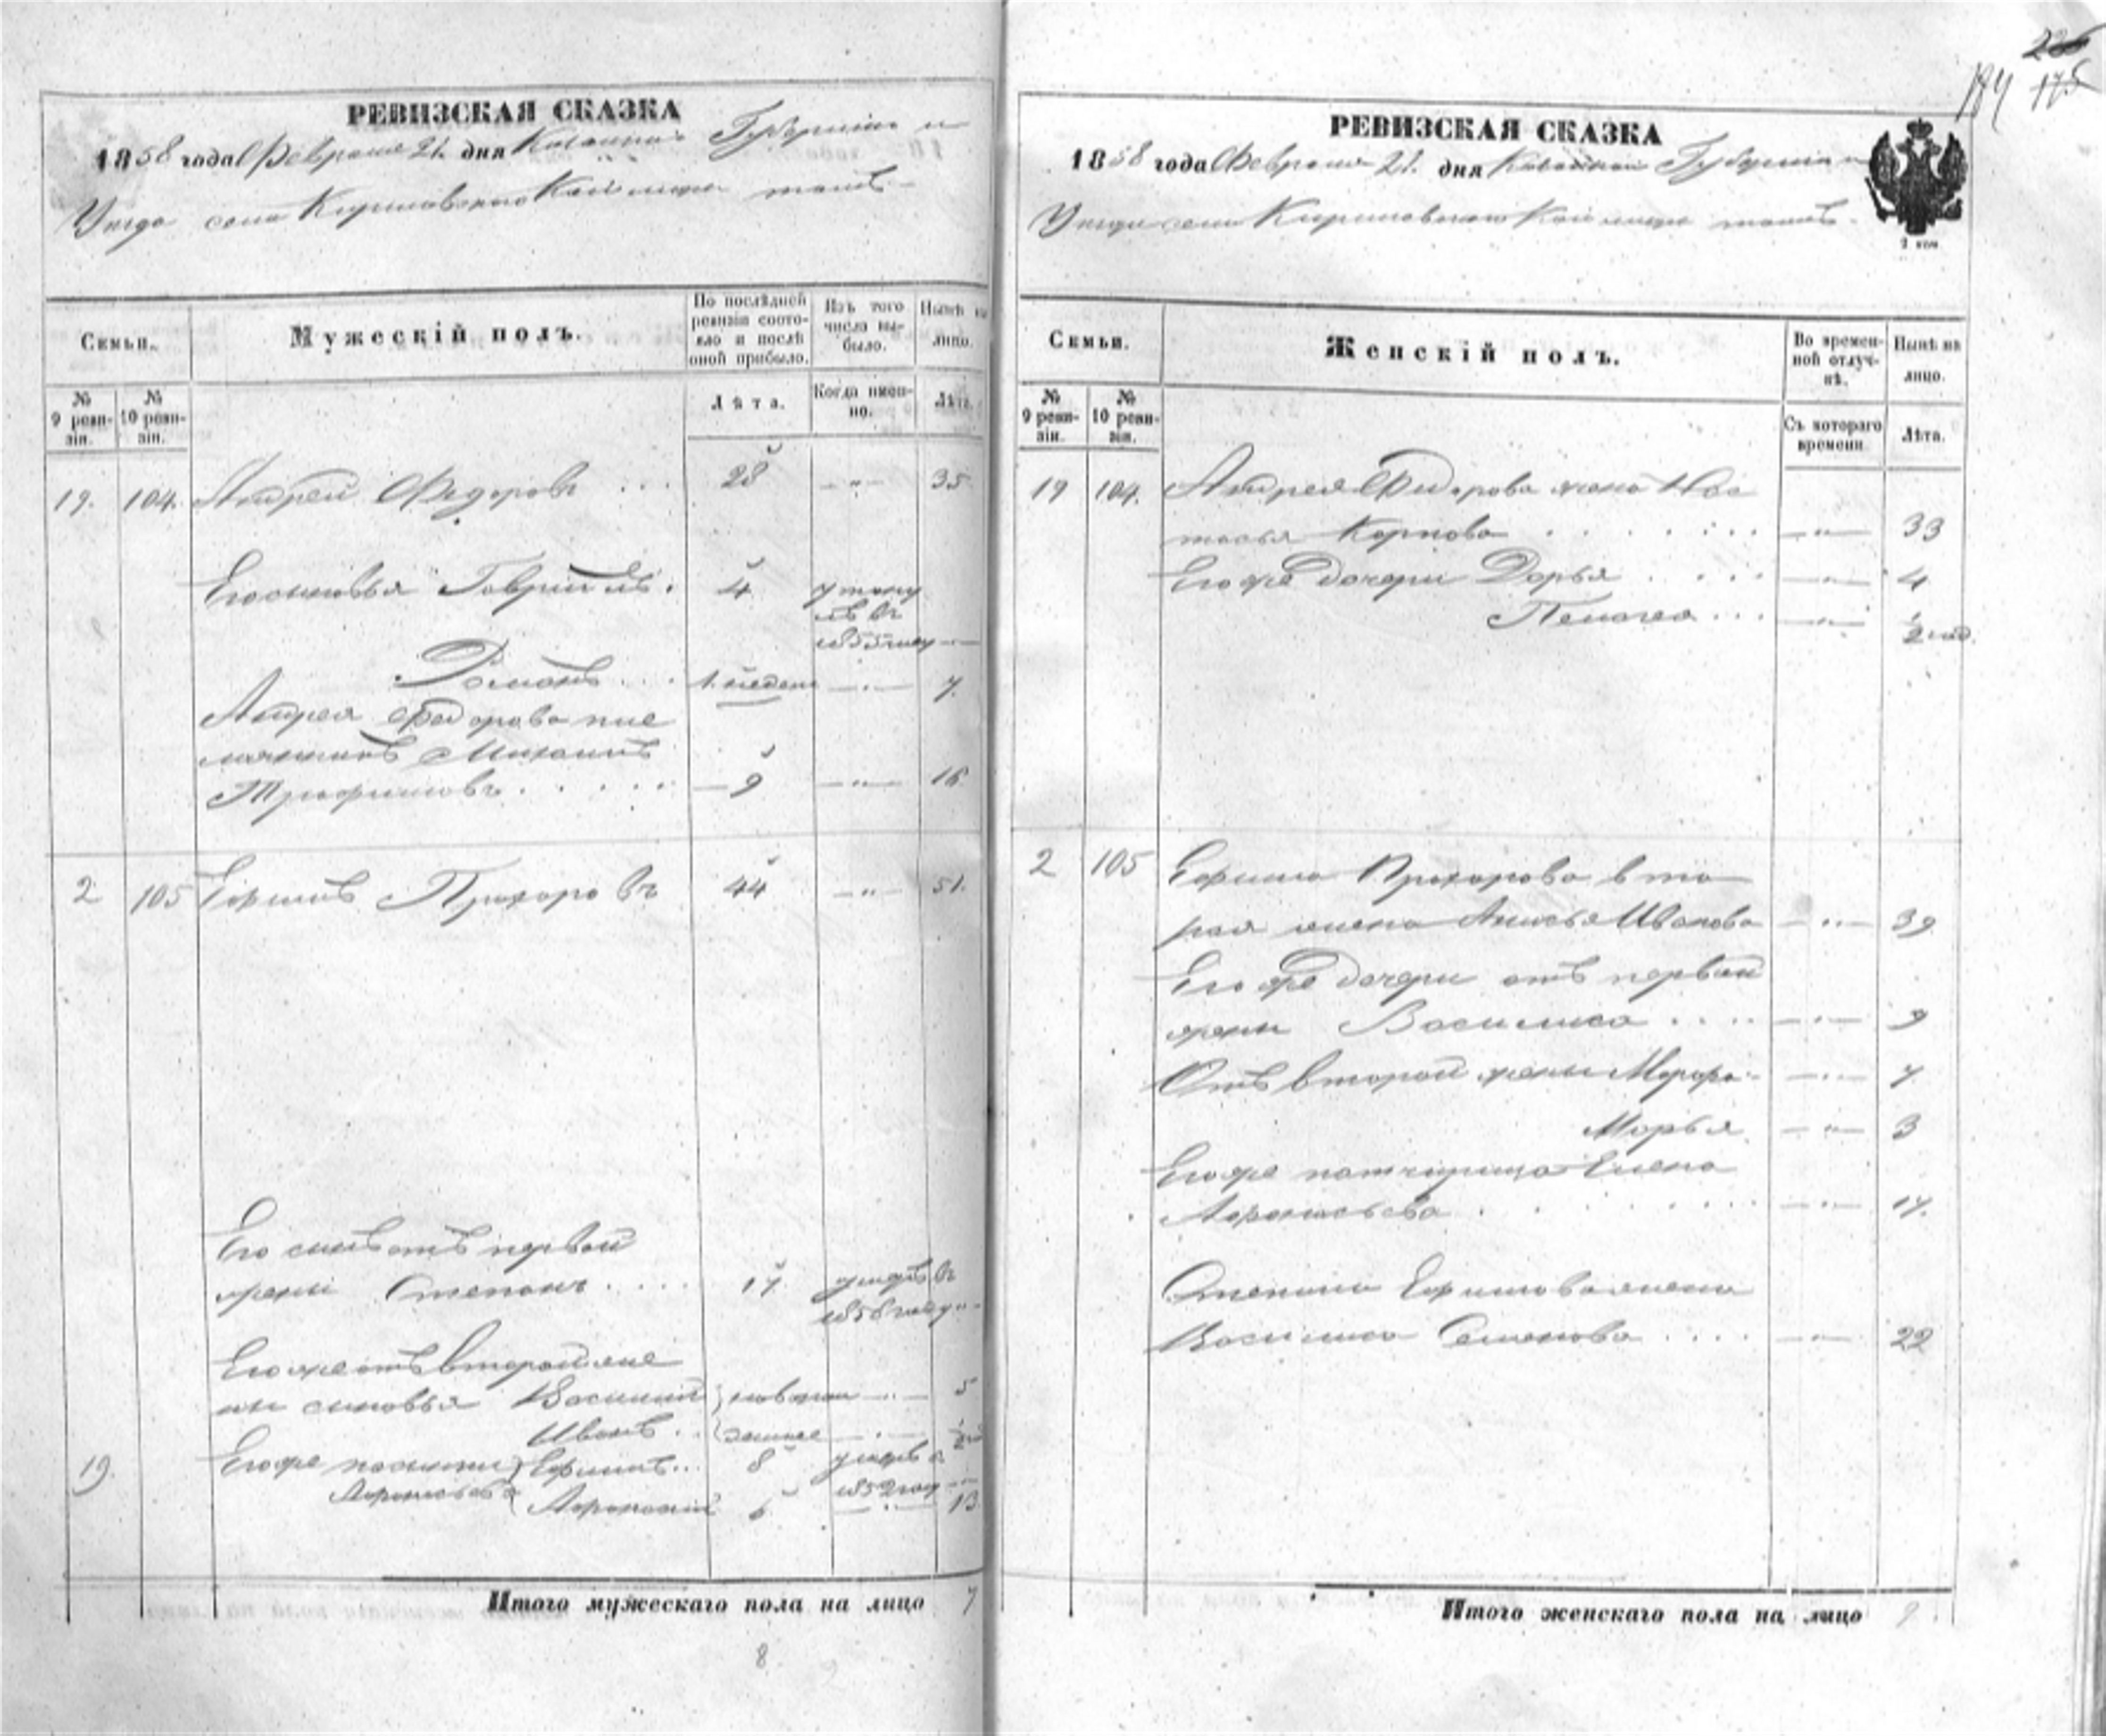 226
184 175
РЕВИЗСКАЯ СКАЗКА
1858 года Февраля 21. дня Казанской Губернии и
Уезда села
По послѣдней ревизіи состояло и послѣ оной прибыло.
Изъ того числа выбыло.
Нынѣ на лицо.
Семьи.
Мужескій полъ.
№ 9 ревизіи.
№ 10 ревизіи.
Лѣта.
Когда именно.
Лѣта.
19. 104. Андрей Федоровъ . . . 28 — " — 35
Его сыновья Гаврiилъ . 4 утону
лъ въ
1855 году —
Романъ . . . 1. недели — " — 7.
Андрея Федорова пле
мянникъ Михаилъ
Трофимовъ . . . . . 9 — " — 16
2 105 Ефимъ Прохоровъ 44 — " — 51.
Его сынъ отъ первой
жены Степанъ . . . . 17 умеръ въ
1856 году "
Его же отъ второй же
ны сыновья Василий } новорож — " — 5
Иванъ . . { денные — " — ½ год
19. Его же пасынки } Ефимъ . . . 8 умеръ в
1852 году —
Афонасьевы { Афонасий 6 — " — 13
Итого мужескаго пола на лицо 7
8
РЕВИЗСКАЯ СКАЗКА
1858 года Февраля 21. дня Казанской Губернии и
Уезда села
2 коп
Семьи.
Женскій полъ.
Во временной отлучкѣ.
Нынѣ на лицо.
№ 9 ревизіи.
№ 10 ревизіи.
Съ котораго времени.
Лѣта.
19 104. Андрея Федорова жена Нас
тасья Карпова . . . . . . . — " — 33
Его же дочери Дарья . . . . — " — 4
Пелагея . . . — " — ½ год.
2 105 Ефима Прохорова вто
рая жена Анисья Иванова — " — 39
Его же дочери отъ первой
жены Василиса . . . . — " — 9
Отъ второй жены Марфа — " — 7
Марья — " — 3
Его же патчирица Елена
Афонасьева . . . . . . . — " — 17.
Степана Ефимова жена
Василиса Семенова . . . . — " — 22
Итого женскаго пола на лицо 9.